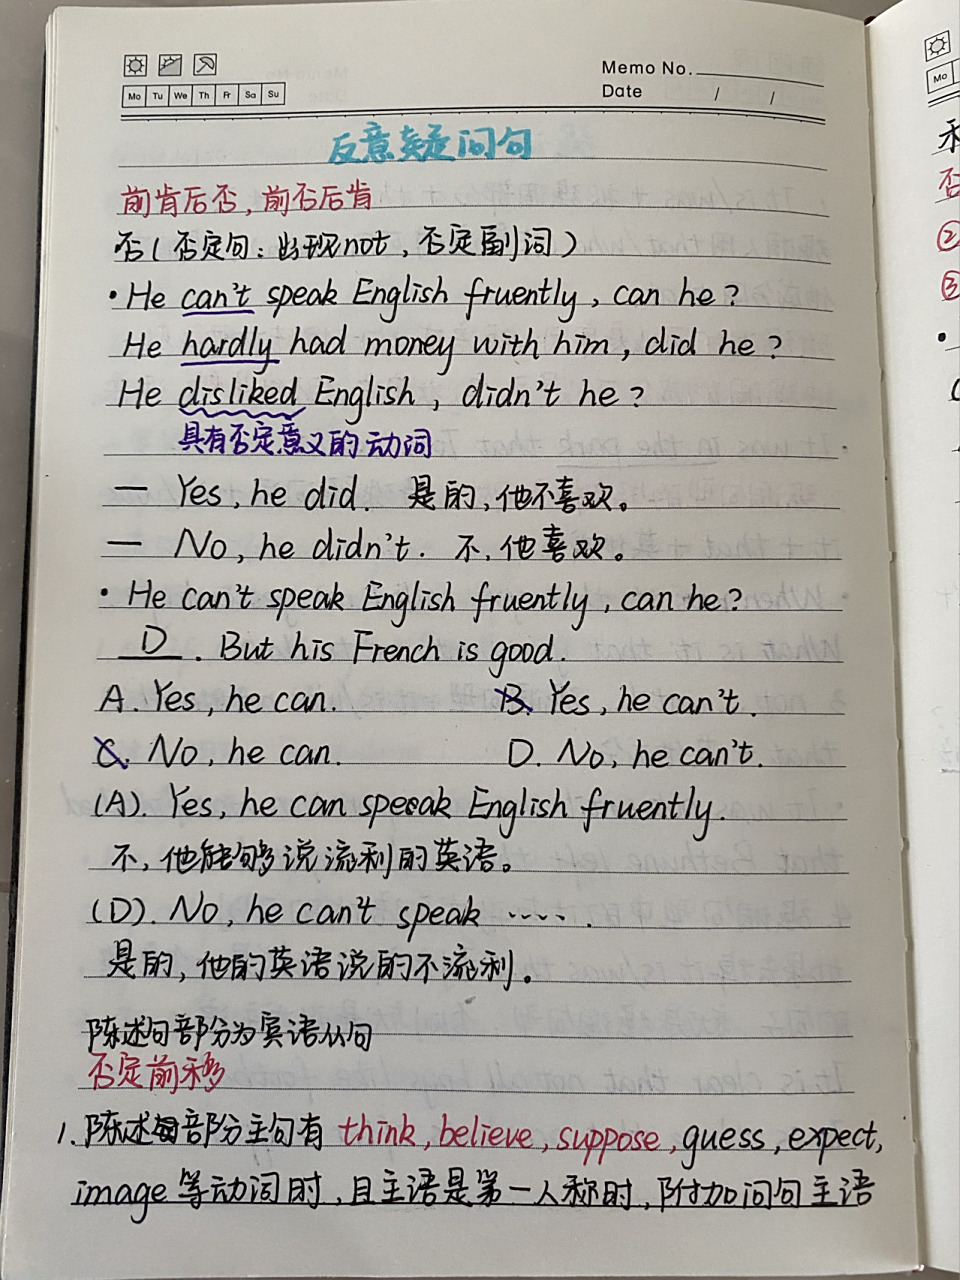 Memo No.
Date / /
Mo Tu We Th Fr Sa Su
反意疑问句
前肯后否,前否后肯
否(否定句:出现not,否定副词)
·He can't speak English fruently, can he?
He hardly had money with him, did he?
He disliked English, didn't he?
具有否定意义的动词
— Yes, he did. 是的,他不喜欢。
— No, he didn't. 不,他喜欢。
·He can't speak English fruently, can he?
D. But his French is good.
A. Yes, he can. B. Yes, he can't.
C. No, he can. D. No, he can't.
(A). Yes, he can speak English fruently.
不,他能够说流利的英语。
(D). No, he can't speak ·····.
是的,他的英语说的不流利.
陈述句部分为宾语从句
否定前移
1. 陈述部分主句有 think, believe, suppose, guess, expect,
image 等动词时,且主语是第一人称时,附加问句主语
Mo
②
③